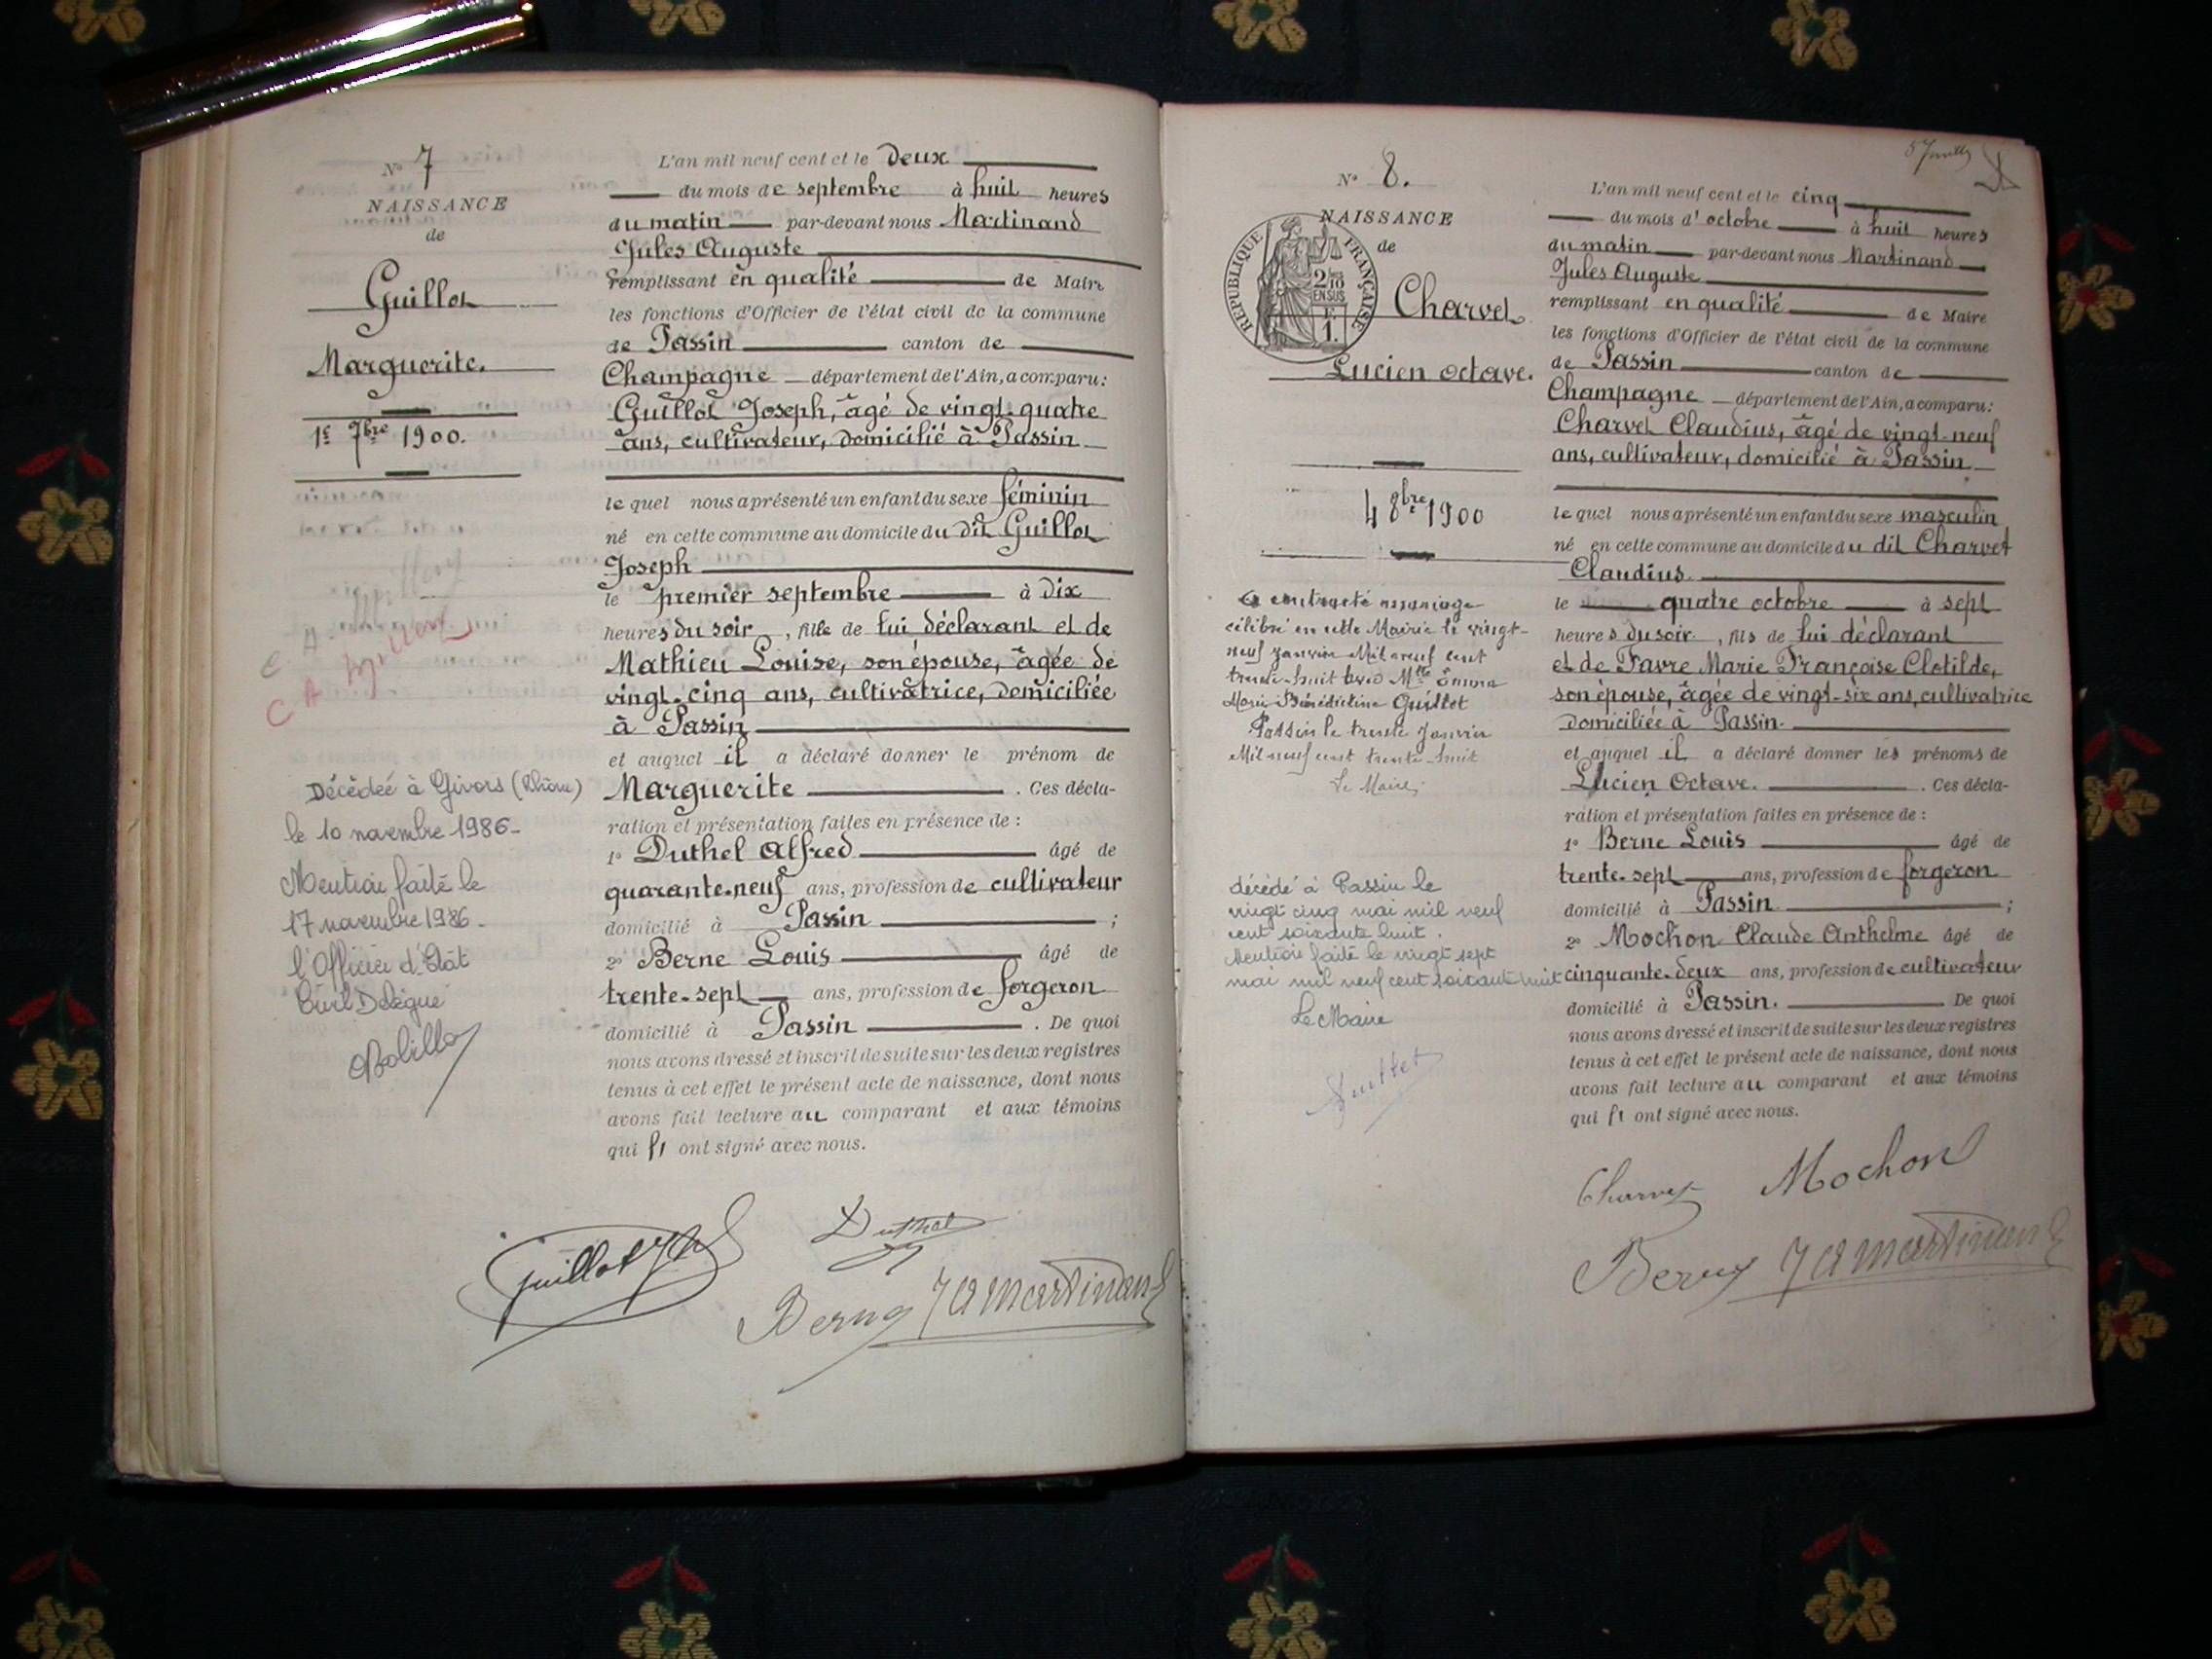 N° 7
NAISSANCE
de
Guillot
Marguerite.
1er 7bre 1900.
Décédée à Givors (Rhône)
le 10 novembre 1986-
Mention faite le
17 novembre 1986-
l'Officier d'Etat
Civil Délégué
L'an mil neuf cent et le deux
du mois de septembre à huit heures
du matin par-devant nous Martinand
Jules Auguste
remplissant en qualité de Maire
les fonctions d'Officier de l'état civil de la commune
de Passin canton de
Champagne département de l'Ain, a comparu:
Guillot Joseph, âgé de vingt-quatre
ans, cultivateur, domicilié à Passin
le quel nous a présenté un enfant du sexe féminin
né en cette commune au domicile du dit Guillot
Joseph
le premier septembre à dix
heures du soir, fille de lui déclarant et de
Mathieu Louise, son épouse, âgée de
vingt-cinq ans, cultivatrice, domiciliée
à Passin
et auquel il a déclaré donner le prénom de
Marguerite. Ces décla-
ration et présentation faites en présence de :
1° Duthel Alfred âgé de
quarante-neuf ans, profession de cultivateur
domicilié à Passin ;
2° Berne Louis âgé de
trente-sept ans, profession de forgeron
domicilié à Passin. De quoi
nous avons dressé et inscrit de suite sur les deux registres
tenus à cet effet le présent acte de naissance, dont nous
avons fait lecture au comparant et aux témoins
qui ont signé avec nous.
Guillot
Duthel
Berne J A Martinand
N° 8.
NAISSANCE
de
RÉPUBLIQUE FRANÇAISE
2/10
EN SUS
1.
Charvet
Lucien octave.
4 8bre 1900
a contracté mariage
célébré en cette Mairie le vingt-
neuf Janvier Mil neuf cent
trente-huit avec Mlle Emma
Marie Bénédictine Guillet
Passin le trente Janvier
Mil neuf cent trente-huit
Le Maire,
décédé à Passin le
vingt cinq mai mil neuf
cent soixante huit.
Mention faite le vingt sept
mai mil neuf cent soixante huit
Le Maire
L'an mil neuf cent et le cinq
du mois d'octobre à huit heures
du matin par-devant nous Martinand
Jules Auguste
remplissant en qualité de Maire
les fonctions d'Officier de l'état civil de la commune
de Passin canton de
Champagne département de l'Ain, a comparu:
Charvet Claudius, âgé de vingt-neuf
ans, cultivateur, domicilié à Passin
le quel nous a présenté un enfant du sexe masculin
né en cette commune au domicile du dit Charvet
Claudius
le quatre octobre à sept
heures du soir, fils de lui déclarant
et de Favre Marie Françoise Clotilde,
son épouse, âgée de vingt-six ans, cultivatrice
domiciliée à Passin.
et auquel il a déclaré donner les prénoms de
Lucien Octave. Ces décla-
ration et présentation faites en présence de :
1° Berne Louis âgé de
trente-sept ans, profession de forgeron
domicilié à Passin ;
2° Mochon Claude Anthelme âgé de
cinquante-deux ans, profession de cultivateur
domicilié à Passin. De quoi
nous avons dressé et inscrit de suite sur les deux registres
tenus à cet effet le présent acte de naissance, dont nous
avons fait lecture au comparant et aux témoins
qui ont signé avec nous.
Charvet Mochon
Berne J A Martinand